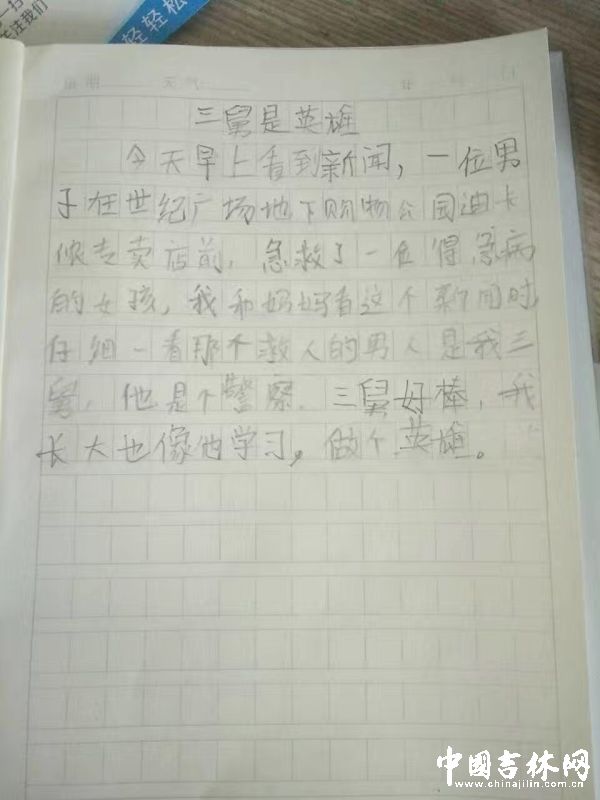 一扫
关注我们
轻轻松
日期
天气
三舅是英雄
今天早上看到新闻，一位男
子在世纪广场地下购物公园迪卡
侬专卖店前，急救了一位得急病
的女孩，我和妈妈看这个新闻时，
仔细一看那个救人的男人是我三
舅，他是个警察，三舅好棒，我
长大也像他学习，做个英雄。
中国吉林网
www.chinajilin.com.cn